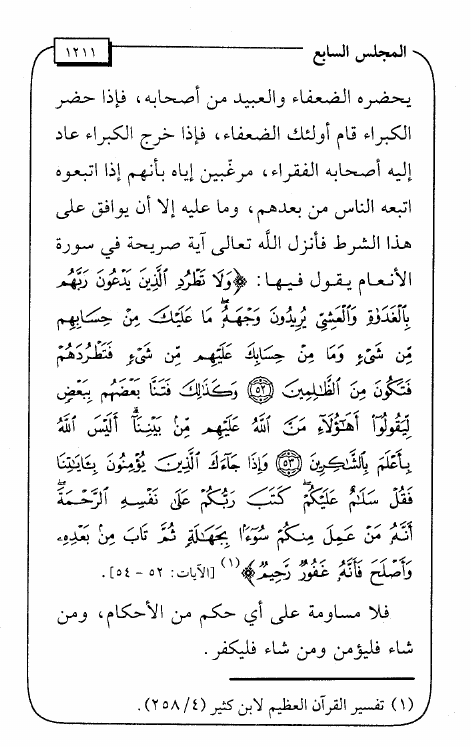 المجلس السابع
١٢١١
يحضره الضعفاء والعبيد من أصحابه، فإذا حضر
الكبراء قام أولئك الضعفاء، فإذا خرج الكبراء عاد
إليه أصحابه الفقراء، مرغّبين إياه بأنهم إذا اتبعوه
اتبعه الناس من بعدهم، وما عليه إلا أن يوافق على
هذا الشرط فأنزل اللَّه تعالى آية صريحة في سورة
الأنعام يقول فيها: ﴿وَلَا تَطْرُدِ ٱلَّذِينَ يَدْعُونَ رَبَّهُم
بِٱلْغَدَوٰةِ وَٱلْعَشِيِّ يُرِيدُونَ وَجْهَهُۥۖ مَا عَلَيْكَ مِنْ حِسَابِهِم
مِّن شَىْءٍ وَمَا مِنْ حِسَابِكَ عَلَيْهِم مِّن شَىْءٍ فَتَطْرُدَهُمْ
فَتَكُونَ مِنَ ٱلظَّٰلِمِينَ ۝٥٢ وَكَذَٰلِكَ فَتَنَّا بَعْضَهُم بِبَعْضٍ
لِّيَقُولُوٓا۟ أَهَٰٓؤُلَآءِ مَنَّ ٱللَّهُ عَلَيْهِم مِّنۢ بَيْنِنَآۗ أَلَيْسَ ٱللَّهُ
بِأَعْلَمَ بِٱلشَّٰكِرِينَ ۝٥٣ وَإِذَا جَآءَكَ ٱلَّذِينَ يُؤْمِنُونَ بِـَٔايَٰتِنَا
فَقُلْ سَلَٰمٌ عَلَيْكُمْۖ كَتَبَ رَبُّكُمْ عَلَىٰ نَفْسِهِ ٱلرَّحْمَةَۖ
أَنَّهُۥ مَنْ عَمِلَ مِنكُمْ سُوٓءًۢا بِجَهَٰلَةٍ ثُمَّ تَابَ مِنۢ بَعْدِهِۦ
وَأَصْلَحَ فَأَنَّهُۥ غَفُورٌ رَّحِيمٌ﴾(١) [الآيات: ٥٢ - ٥٤].
فلا مساومة على أي حكم من الأحكام، ومن
شاء فليؤمن ومن شاء فليكفر.
(١) تفسير القرآن العظيم لابن كثير (٢٥٨/٤).